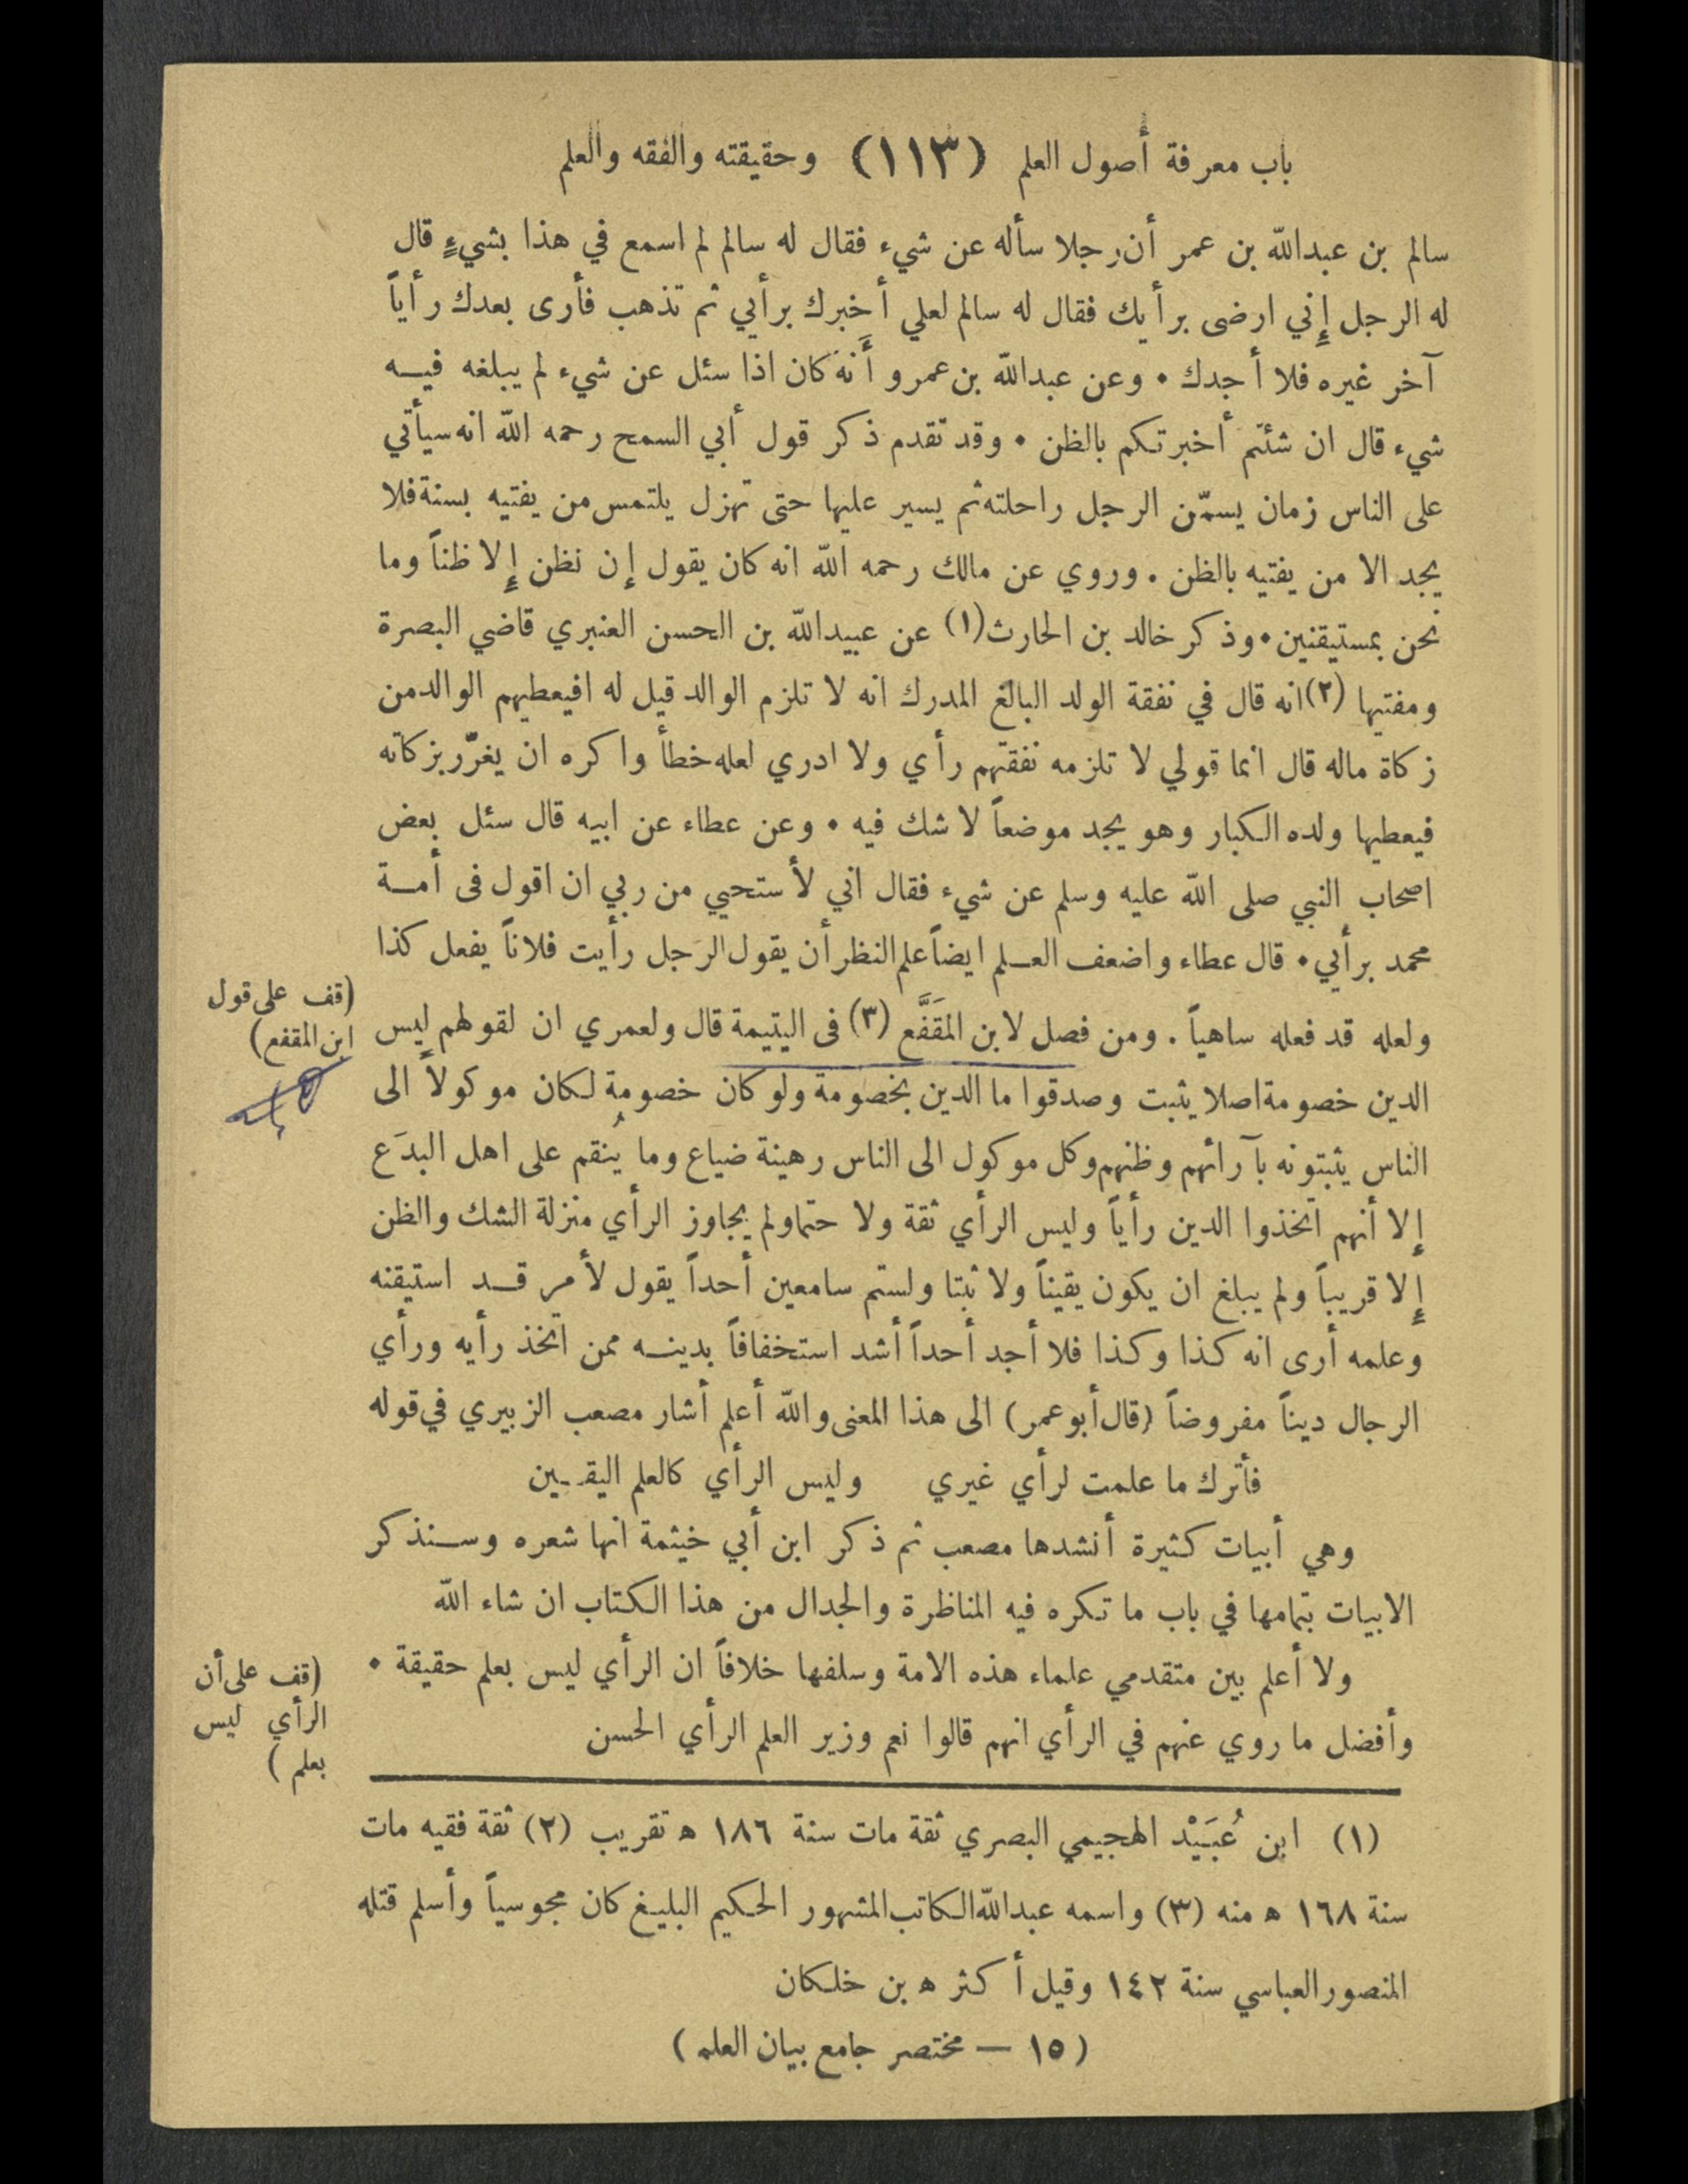 باب معرفة أصول العلم (١١٣) وحقيقته والفقه والعلم
سالم بن عبدالله بن عمر أن رجلا سأله عن شيء فقال له سالم لم اسمع في هذا بشيءٍ قال
له الرجل إِني ارضى برأيك فقال له سالم لعلي أخبرك برأيي ثم تذهب فأرى بعدك رأياً
آخر غيره فلا أجدك • وعن عبدالله بن عمرو أَنه كان اذا سئل عن شيء لم يبلغه فيـــه
شيء قال ان شئتم أخبرتكم بالظن • وقد تقدم ذكر قول أبي السمح رحمه الله انه سيأتي
على الناس زمان يسمّن الرجل راحلته ثم يسير عليها حتى تهزل يلتمس من يفتيه بسنة فلا
يجد الا من يفتيه بالظن . وروي عن مالك رحمه الله انه كان يقول إن نظن إِلا ظناً وما
نحن بمستيقنين • وذكر خالد بن الحارث (١) عن عبيدالله بن الحسن العنبري قاضي البصرة
ومفتيها (٢) انه قال في نفقة الولد البالغ المدرك انه لا تلزم الوالد قيل له افيعطيهم الوالد من
زكاة ماله قال انما قولي لا تلزمه نفقتهم رأي ولا ادري لعله خطأ واكره ان يغرّر بزكاته
فيعطيها ولده الكبار وهو يجد موضعاً لا شك فيه • وعن عطاء عن ابيه قال سئل بعض
اصحاب النبي صلى الله عليه وسلم عن شيء فقال اني لأستحيي من ربي ان اقول فى أمـــة
محمد برأيي • قال عطاء واضعف العـــلم ايضاً علم النظر أن يقول الرجل رأيت فلاناً يفعل كذا
ولعله قد فعله ساهياً . ومن فصل لابن المقَفَّع (٣) فى اليتيمة قال ولعمري ان لقولهم ليس
(قف على قول
ابن المقفع)
الدين خصومة اصلا يثبت وصدقوا ما الدين بخصومة ولو كان خصومة لكان موكولاً الى
الناس يثبتونه بآرائهم وظنهم وكل موكول الى الناس رهينة ضياع وما يُنقم على اهل البدَع
إِلا أنهم اتخذوا الدين رأياً وليس الرأي ثقة ولا حتما ولم يجاوز الرأي منزلة الشك والظن
إِلا قريباً ولم يبلغ ان يكون يقيناً ولا ثبتا ولستم سامعين أحداً يقول لأمر قـــد استيقنه
وعلمه أرى انه كذا وكذا فلا أجد أحداً أشد استخفافاً بدينـــه ممن اتخذ رأيه ورأي
الرجال ديناً مفروضاً (قال أبوعمر) الى هذا المعنى والله أعلم أشار مصعب الزبيري في قوله
فأترك ما علمت لرأي غيري وليس الرأي كالعلم اليقـــين
وهي أبيات كثيرة أنشدها مصعب ثم ذكر ابن أبي خيثمة انها شعره وســـنذكر
الابيات بتمامها في باب ما تكره فيه المناظرة والجدال من هذا الكتاب ان شاء الله
ولا أعلم بين متقدمي علماء هذه الامة وسلفها خلافاً ان الرأي ليس بعلم حقيقة •
وأفضل ما روي عنهم في الرأي انهم قالوا نعم وزير العلم الرأي الحسن
(قف على أن
الرأي ليس
بعلم )
(١) ابن عُبَيْد الهجيمي البصري ثقة مات سنة ١٨٦ ه تقريب (٢) ثقة فقيه مات
سنة ١٦٨ ه منه (٣) واسمه عبدالله الكاتب المشهور الحكيم البليغ كان مجوسياً وأسلم قتله
المنصور العباسي سنة ١٤٢ وقيل أكثر ه بن خلكان
(١٥ — مختصر جامع بيان العلم )